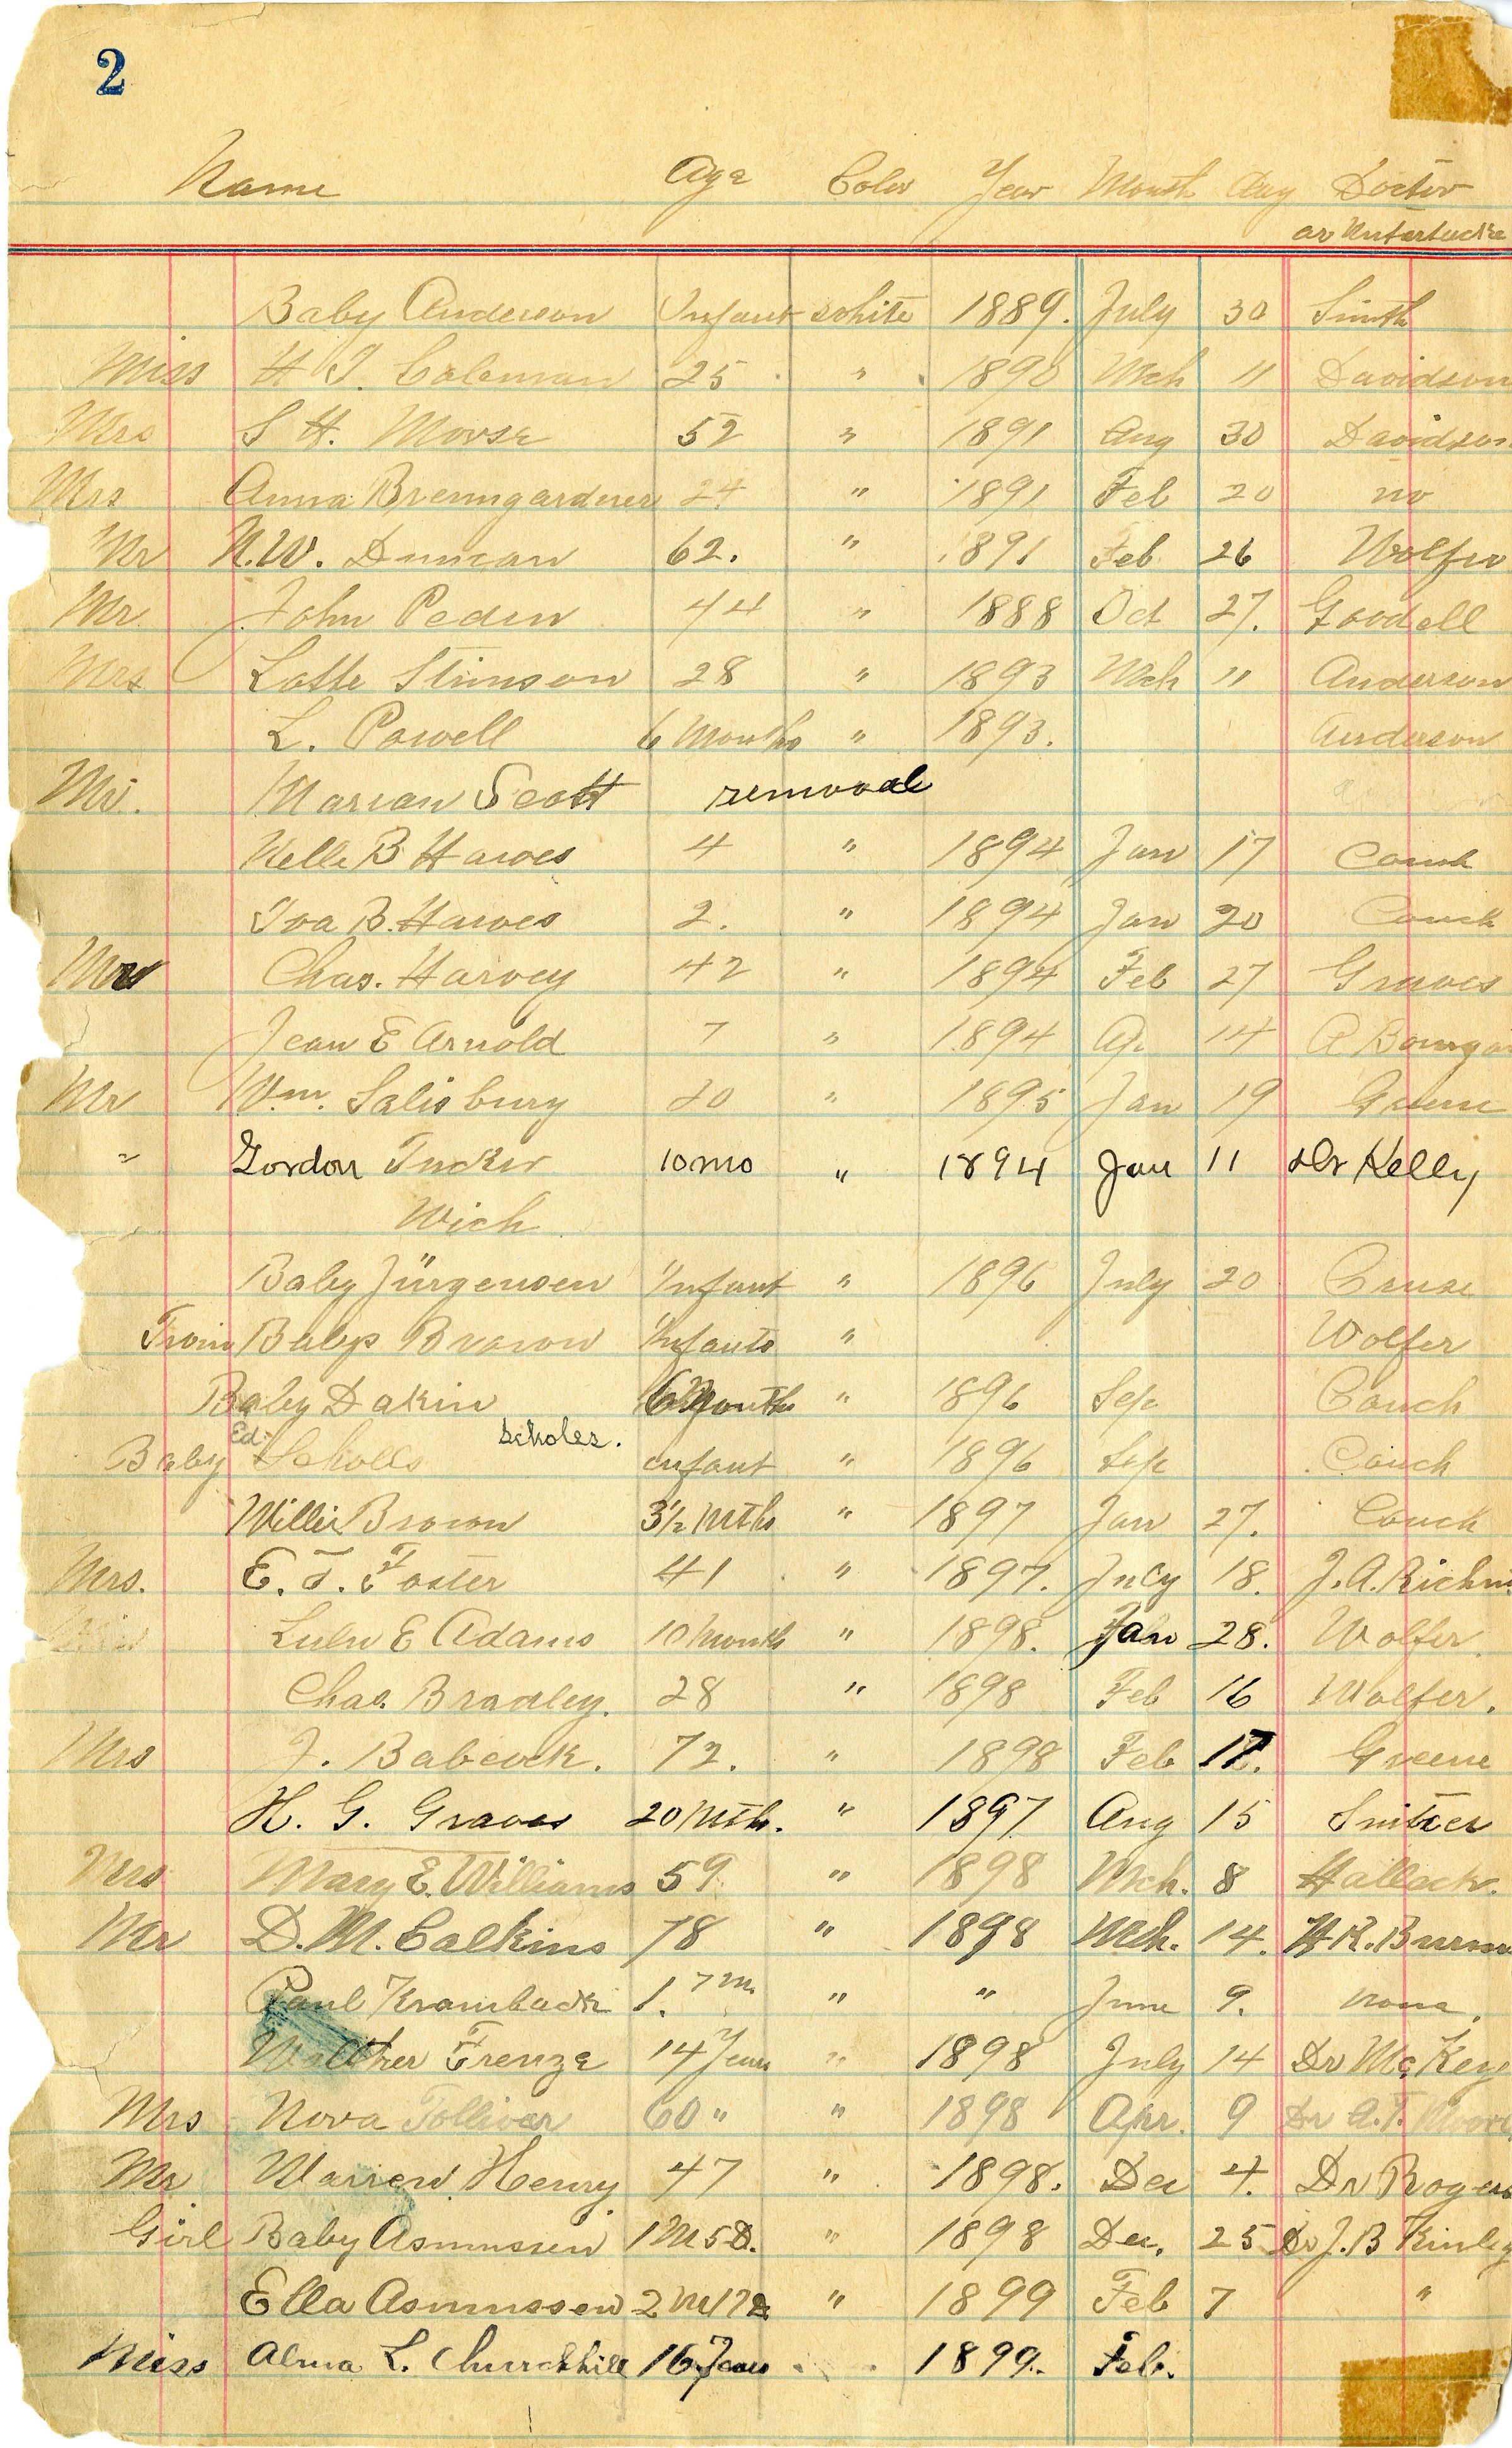 2
Name Age Color Year Month Day Doctor
or Untertucke
Baby Anderson Infant white 1889. July 30 Smith
Miss H T. Coleman 25 " 1890 Mch 11 Davidson
Mrs S H. Morse 52 " 1891 Aug 30 Davidson
Mrs Anna Bremgarderer 24 " 1891 Feb 20 no
Mr N.W. Duncan 62. " 1891 Feb 26 Wolfer
Mr John Peden 44 " 1888 Oct 27. Goodell
Mrs Lotte Stimson 28 " 1893 Mch 11 Anderson
L. Powell 6 Months " 1893. Anderson
Mr. Marion Scott removal
Nelle B Hawes 4 " 1894 Jan 17 Couch
Iva B. Hawes 2. " 1894 Jan 20 Couch
Chas. Harvey 42 " 1894 Feb 27 Graves
Jean E Arnold 7 " 1894 Ap. 14 A.
Mr Wm. Salisbury 20 " 1895 Jan 19
" Gordon Tucker 10 mo " 1894 Jan 11 Dr Kelly
Wich
Baby Jürgensen Infant " 1896 July 20 Cruse
Twin Babys Brown Infants " Wolfer
Baby Dakin 6 Months " 1896 Sep Couch
Ed. Scholes.
Baby Scholls infant " 1896 Sep Couch
Willie Brown 3½ Mths " 1897 Jan 27. Couch
Mrs. E. T. Foster 41 " 1897. July 18. J.A. Richm
Lulu E Adams 10 Month " 1898. Jan 28. Wolfer
Chas. Bradley. 28 " 1898 Feb 16 Wolfer.
Mrs J. Babcock. 72. " 1898 Feb Greene
H. G. Graves 20 Mth. " 1897 Aug 15
Mrs Mary E. Williams 59 " 1898 Mch. 8 Hallock.
Mr D.M. Calkins 78 " 1898 Mch. 14.
Paul Krambach 1. 7m. " " June 9. none.
Walther Frenze 14 Years " 1898 July 14 Dr McKey
Mrs Nova Tolliver 60 " " 1898 Apr. 9 Dr A.T.
Mr Warren Henry 47 " 1898. Dec 4. Dr Rogers
Girl Baby Asmussen 1M 5D. " 1898 Dec. 25 Dr J.B Kinley
Ella Asmussen 2M 17D " 1899 Feb 7 "
Miss Alma L. Churchhill 16 Years 1899. Feb.